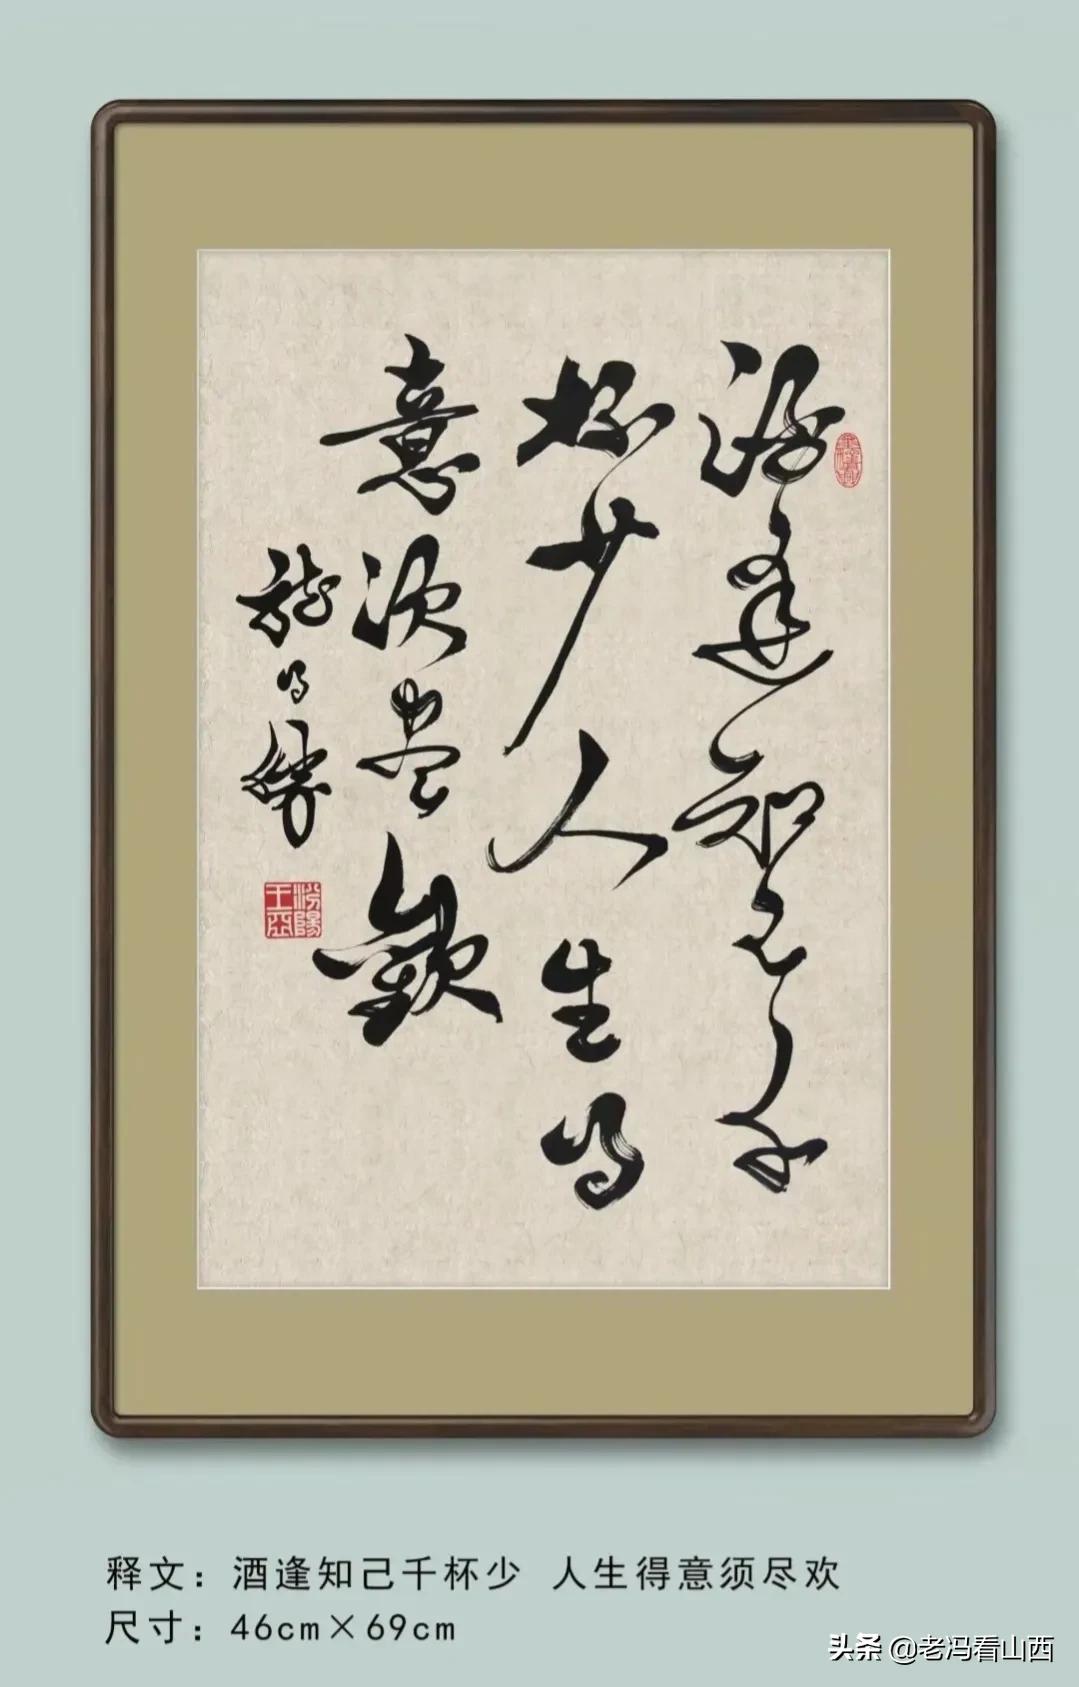 酒逢知己千
杯少人生得
意须尽欢
释文：酒逢知己千杯少 人生得意须尽欢
尺寸：46cm×69cm
头条 @老冯看山西